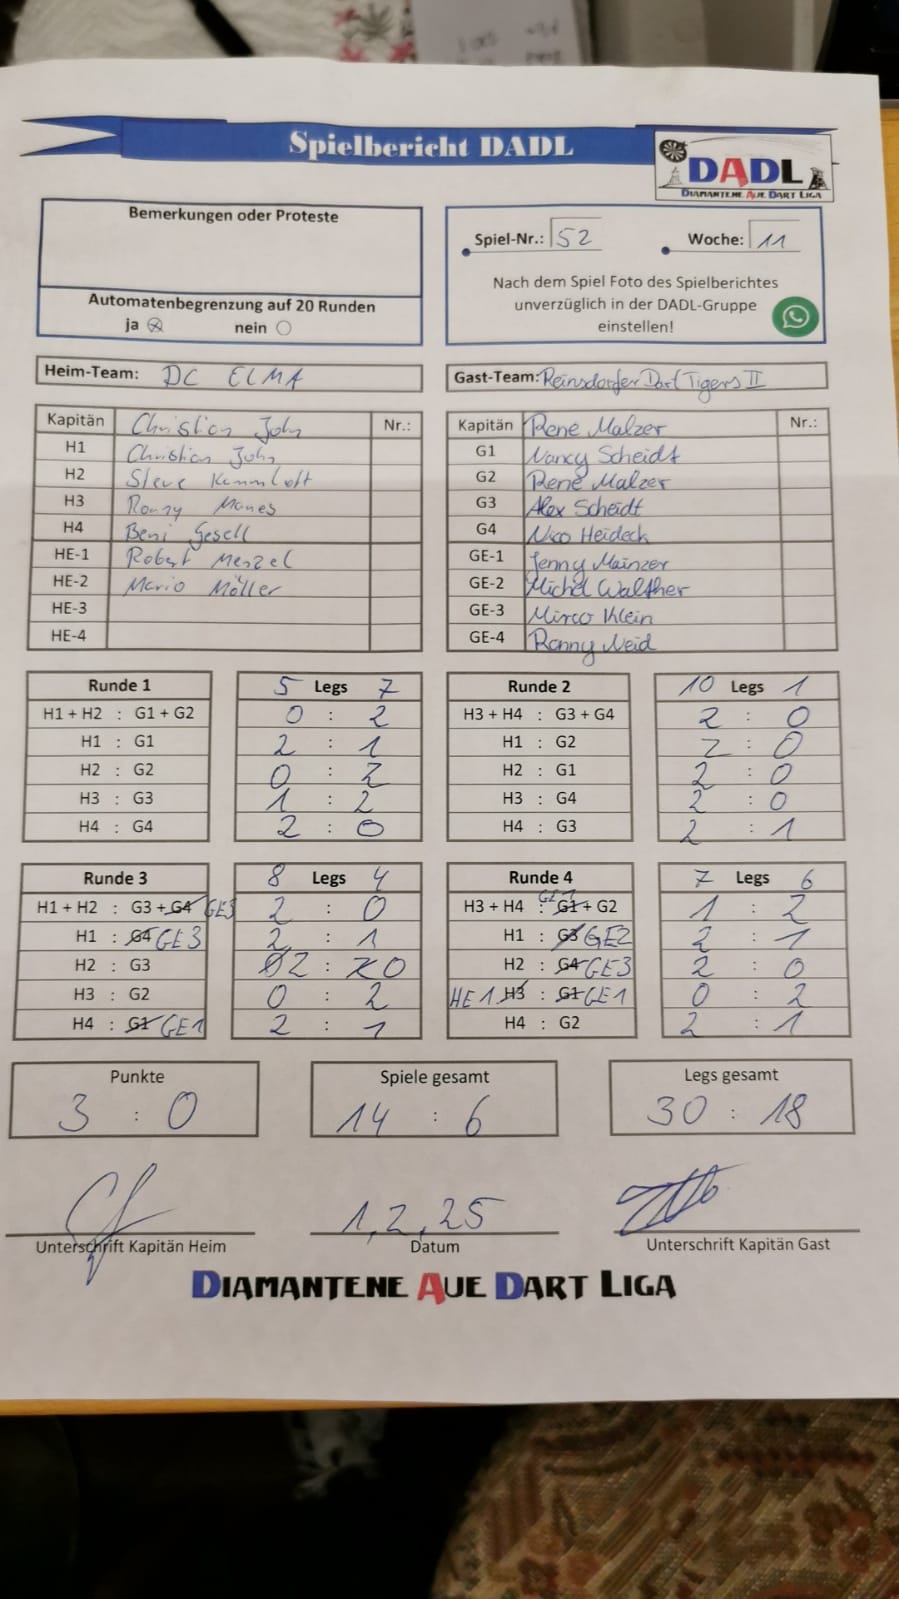 Spielbericht DADL
DADL
DIAMANTENE AUE DART LIGA
Bemerkungen oder Proteste
Automatenbegrenzung auf 20 Runden
ja ⊗ nein ○
Spiel-Nr.: 52 Woche: 11
Nach dem Spiel Foto des Spielberichtes
unverzüglich in der DADL-Gruppe
einstellen!
Heim-Team: DC ELMA
Gast-Team: Reinsdorfer Dart Tigers II
Kapitän Christian John Nr.:
H1 Christian John
H2 Steve
H3 Ronny
H4 Beni Gesell
HE-1 Robert Menzel
HE-2 Mario Möller
HE-3
HE-4
Kapitän Rene Malzer Nr.:
G1 Nancy Scheidt
G2 Rene Malzer
G3 Alex Scheidt
G4 Nico Heideck
GE-1 Jenny Mainzer
GE-2 Michel Walther
GE-3 Mirco Klein
GE-4 Ronny Neid
Runde 1 5 Legs 7
H1 + H2 : G1 + G2 0 : 2
H1 : G1 2 : 1
H2 : G2 0 : 2
H3 : G3 1 : 2
H4 : G4 2 : 0
Runde 2 10 Legs 1
H3 + H4 : G3 + G4 2 : 0
H1 : G2 2 : 0
H2 : G1 2 : 0
H3 : G4 2 : 0
H4 : G3 2 : 1
Runde 3 8 Legs 4
H1 + H2 : G3 + G4 GE3 2 : 0
H1 : G4 GE3 2 : 1
H2 : G3 0 2 : 2 0
H3 : G2 0 : 2
H4 : G1 GE1 2 : 1
Runde 4 7 Legs 6
GE1
H3 + H4 : G1 + G2 1 : 2
H1 : G3 GE2 2 : 1
H2 : G4 GE3 2 : 0
HE1 H3 : G1 GE1 0 : 2
H4 : G2 2 : 1
Punkte
3 : 0
Spiele gesamt
14 : 6
Legs gesamt
30 : 18
1,2,25
Unterschrift Kapitän Heim
Datum
Unterschrift Kapitän Gast
DIAMANTENE AUE DART LIGA